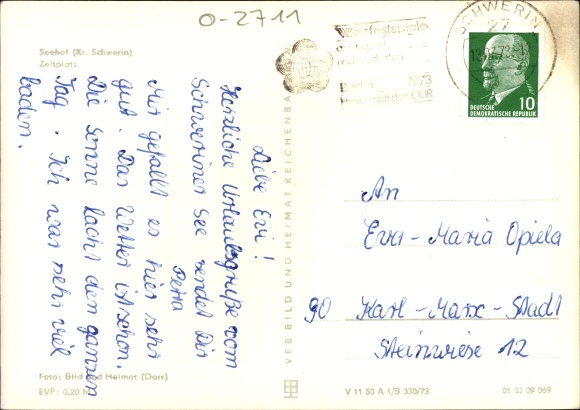 O-2711
Seehof (Kr. Schwerin)
Zeltplatz
Liebe Evi!
Herzliche Urlaubsgrüße vom
Schweriner See sendet Dir
Petra
Mir gefällt es hier sehr
gut. Das Wetter ist schön.
Die Sonne lacht den ganzen
Tag. Ich war sehr viel
baden.
Foto: Bild und Heimat (Darr)
EVP: 0,20 M
VEB BILD UND HEIMAT REICHENBACH
Weltfestspiele
der Jugend
und Studenten
Berlin 1973
Hauptstadt der DDR
SCHWERIN
27
10
DEUTSCHE
DEMOKRATISCHE REPUBLIK
An
Eva-Maria Opiela
90 Karl-Marx-Stadt
Steinwiese 12
V 11 50 A 1/B 330/73
01 02 09 069